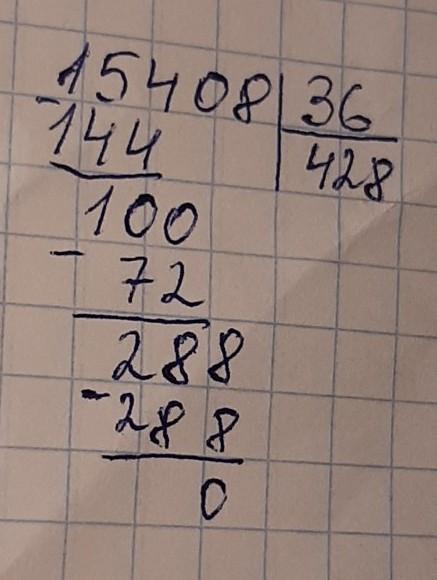 15408 36
- 144 428
100
- 72
288
- 288
0